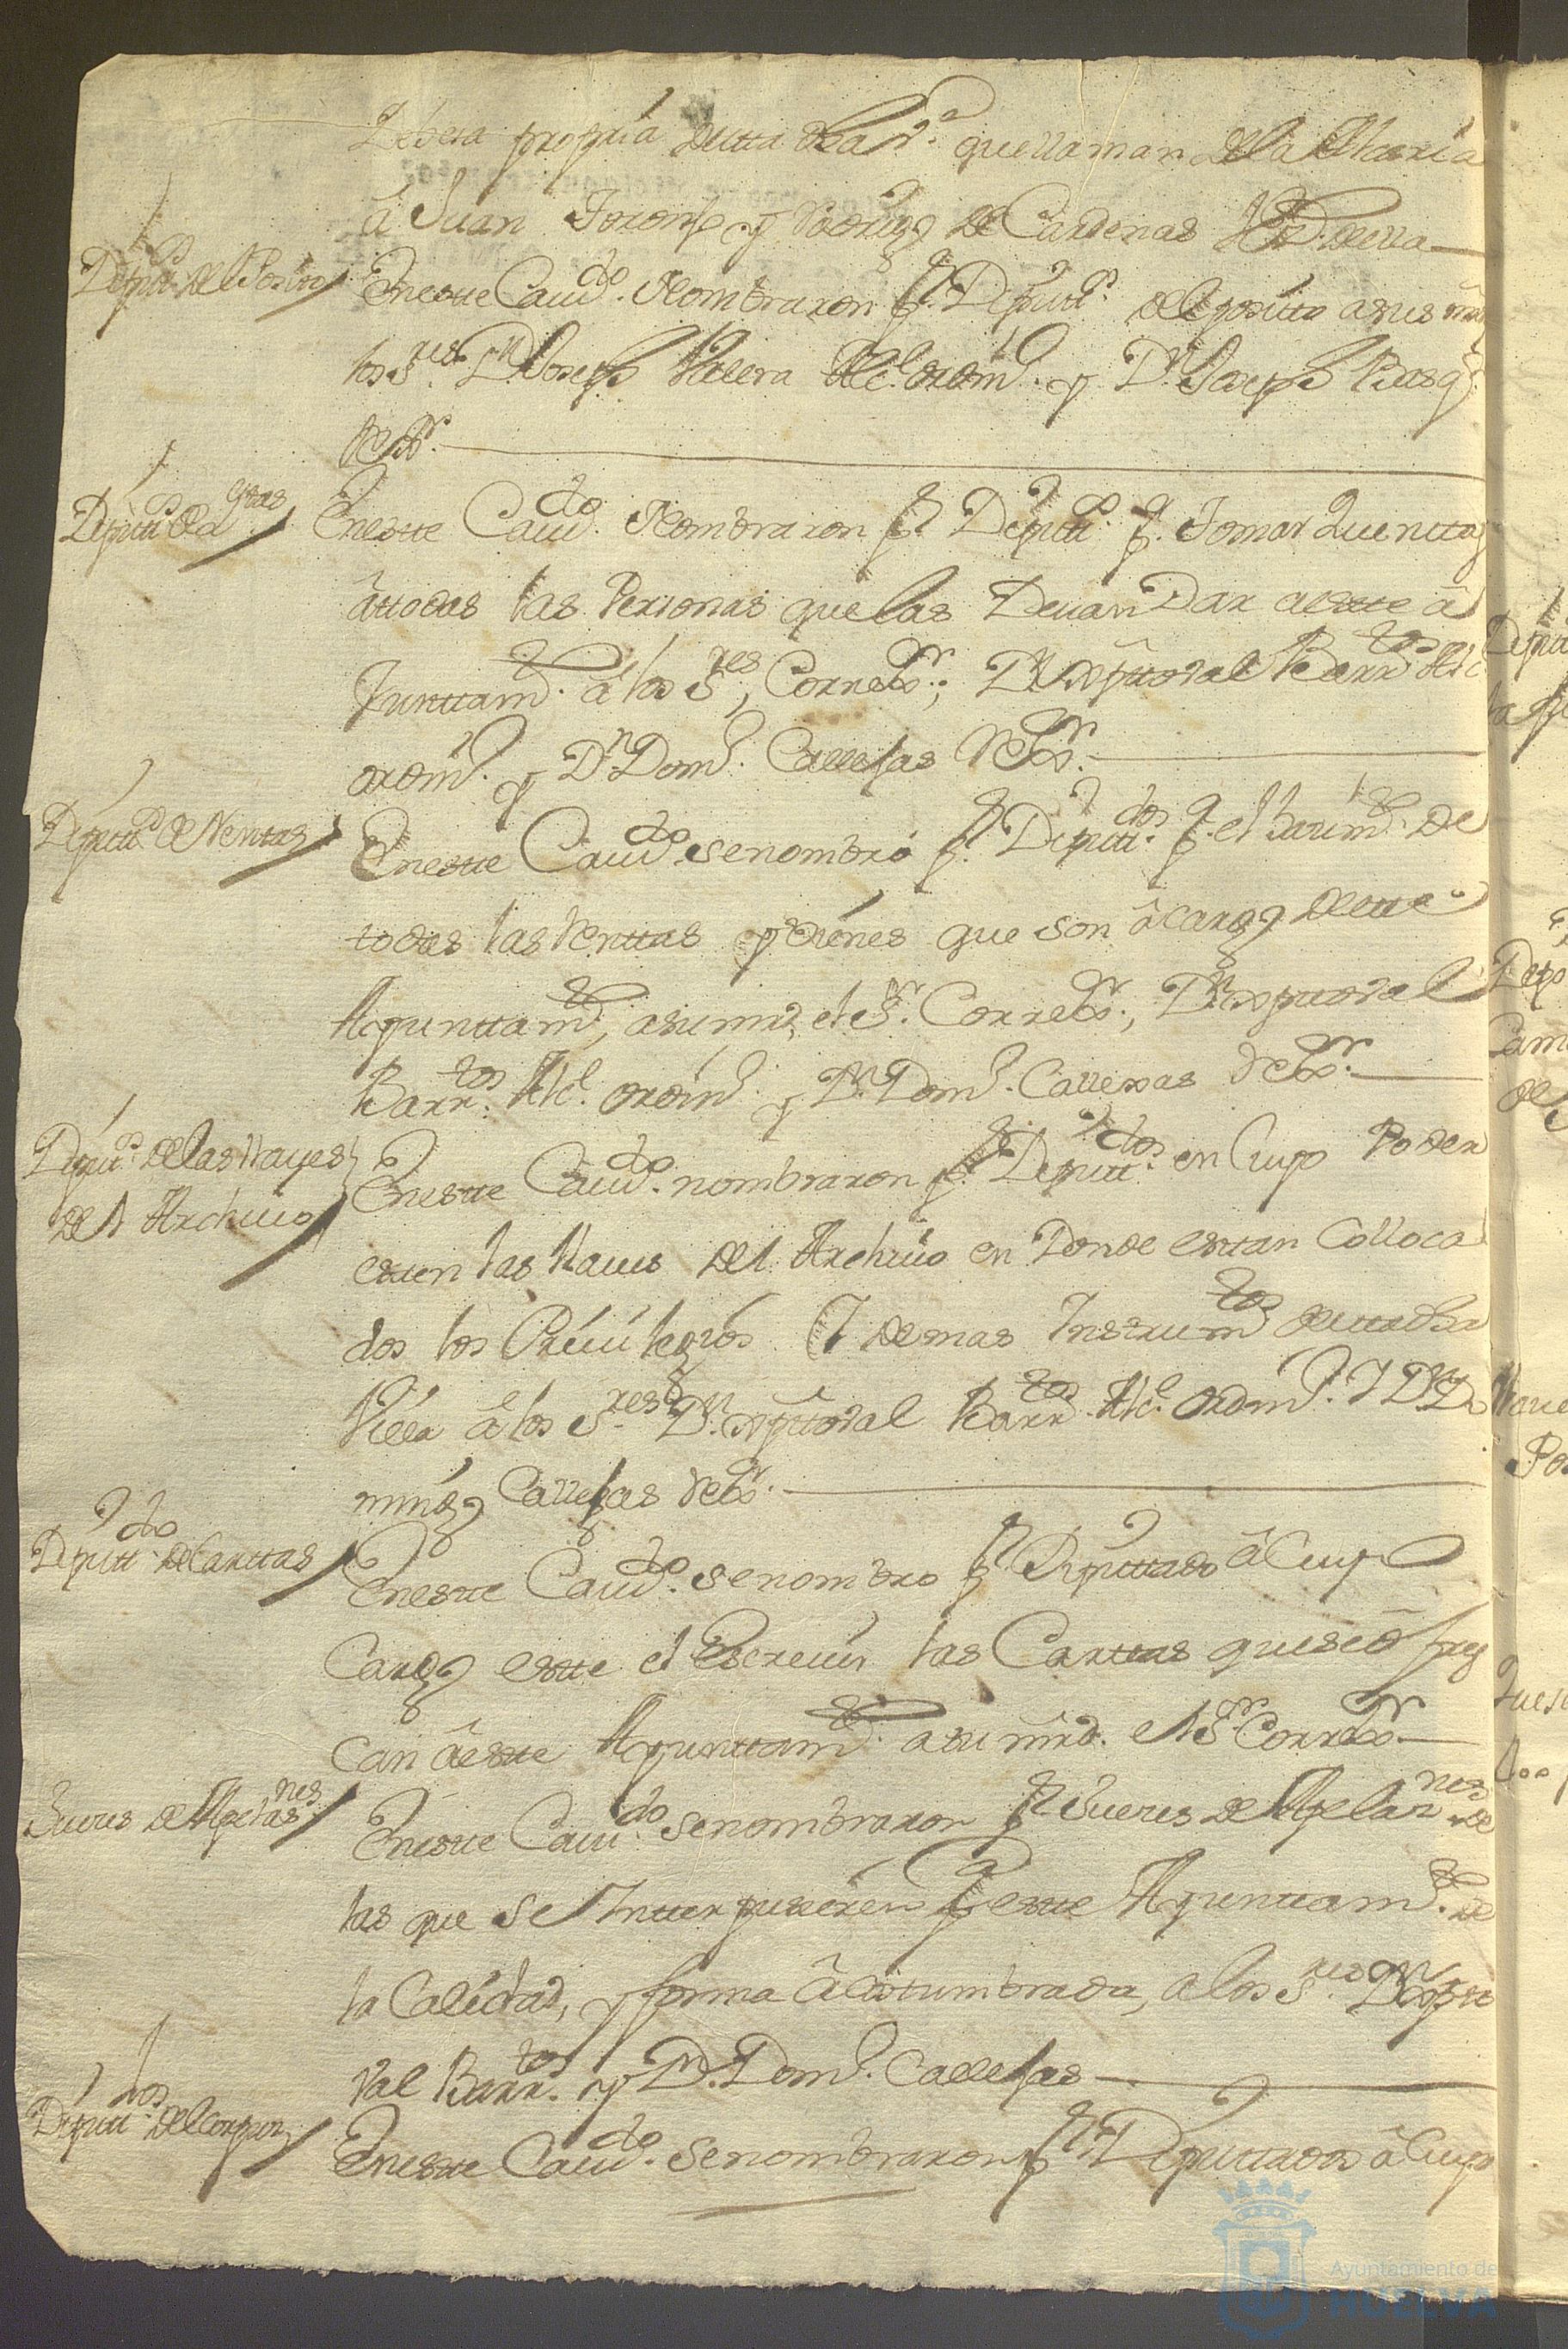 propria detta dha v.ª que llaman de la
â Juan y Rodrigo de Cardenas Vº della
Diputt.º del Positto
En este Cavd.do Nombraron p.r Diputt.os del positto a sus
los S.res D.n Joseph Valera Alc.e ordin.º y D.n Joseph
Reg.or
Diputt.º de
En este Cavd.do Nombraron p.r Diputt.os p.ª Tomar Quenttas
âttodas las Personas que las Devan Dar a este â
Junttam.to â los S.res Correg.or; D.n Xpttoval Barr.tos Alc.e
ordin.º y D.n Dom.º Callejas Reg.or
Diputt.os de Renttas
En este Cavd.do se nombró p.r Diputt.dos p.ª el de
todas las Renttas y vienes que son â cargo deste
Ayunttam.to, a su mrd, el S.r Correg.or, D.n Xpttoval
Barr.tos Alc.e ordin.º y D.n Dom.º Callexas Reg.or
Diputt.os de las llaves
del Archivo
En este Cavd.do nombraron p.r Diputt.dos en Cuyo Poder
esten las llaves del Archivo en Donde estan Colloca
dos los Privilegios Y demas Instrum.tos destta dha
Villa â los S.res D.n Xpttoval Barr.tos Alc.e ordin.º Y D.n Do
mingo Callejas Reg.or
Diputt.do de Carttas
En este Cavd.do se nombro p.r Diputtado â Cuyo
Cargo este el Escrevir las Carttas que se ofrez
can â este Ayunttam.to a su mrd. el S.r Correg.or
Jueces de Apelas.nes
En este Cavd.do se nombraron p.r Jueces de Apelaz.nes de
las que se Intterpusieren p.ª este Ayunttam.to de
la Calidad, y forma âcostumbrada, a los S.res D.n Xptto
val Barr.tos y D.n Dom.º Callejas
Diputt.dos del Corpus
En este Cavd.do se nombraron p.r Diputtados â Cuyo
Ayuntamiento de
HUELVA